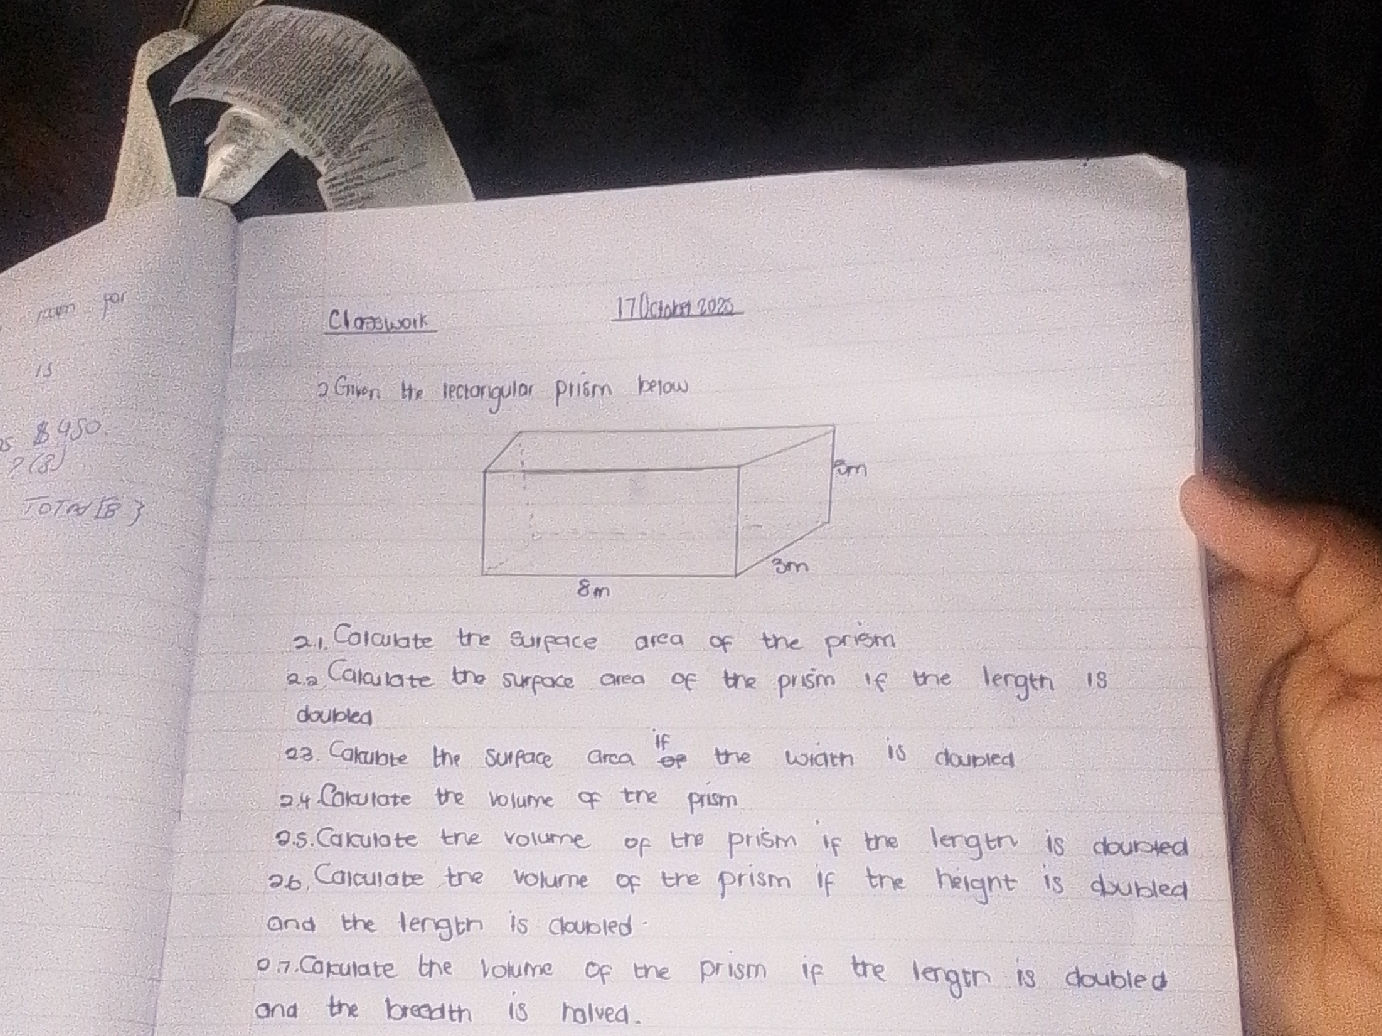 for
is
$450.
?(8)
TOTAL [8]
Classwork
17 October 2025
2 Given the rectangular prism below
m
3m
8m
2.1. Calculate the surface area of the prism
2.2 Calculate the surface area of the prism if the length is
doubled
2.3. Calculate the surface area of if the width is doubled
2.4 Calculate the volume of the prism
2.5. Calculate the volume of the prism if the length is doubled
2.6. Calculate the volume of the prism if the height is doubled
and the length is doubled.
2.7. Calculate the volume of the prism if the length is doubled
and the breadth is halved.